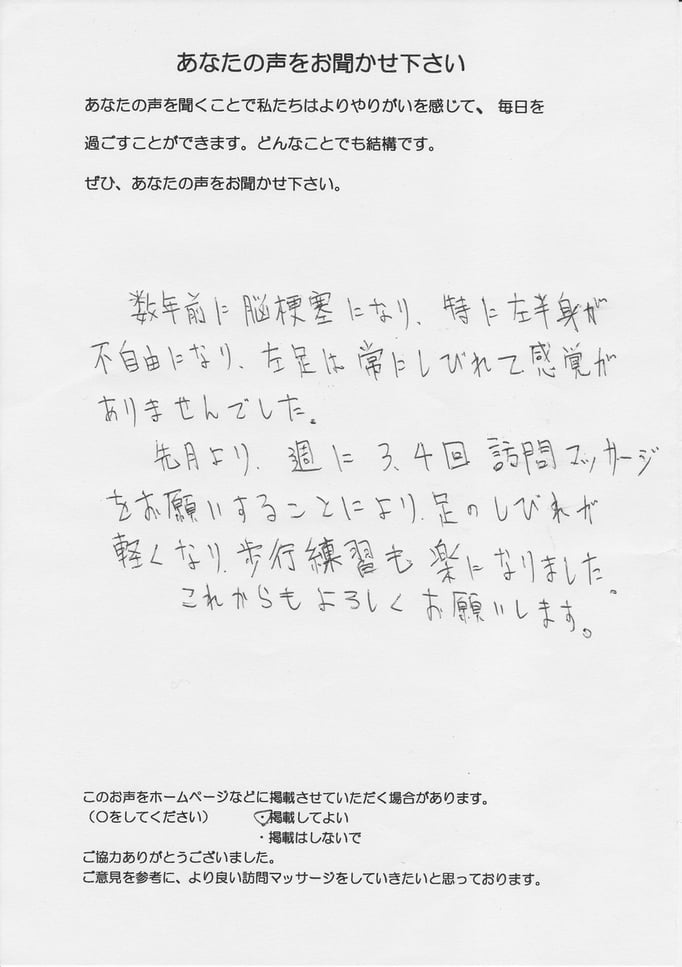 あなたの声をお聞かせ下さい
あなたの声を聞くことで私たちはよりやりがいを感じて、毎日を
過ごすことができます。どんなことでも結構です。
ぜひ、あなたの声をお聞かせ下さい。
数年前に脳梗塞になり、特に左半身が
不自由になり、左足は常にしびれて感覚が
ありませんでした。
先月より、週に3、4回訪問マッサージ
をお願いすることにより、足のしびれが
軽くなり、歩行練習も楽になりました。
これからもよろしくお願いします。
このお声をホームページなどに掲載させていただく場合があります。
（○をしてください）　・掲載してよい
・掲載はしないで
ご協力ありがとうございました。
ご意見を参考に、より良い訪問マッサージをしていきたいと思っております。